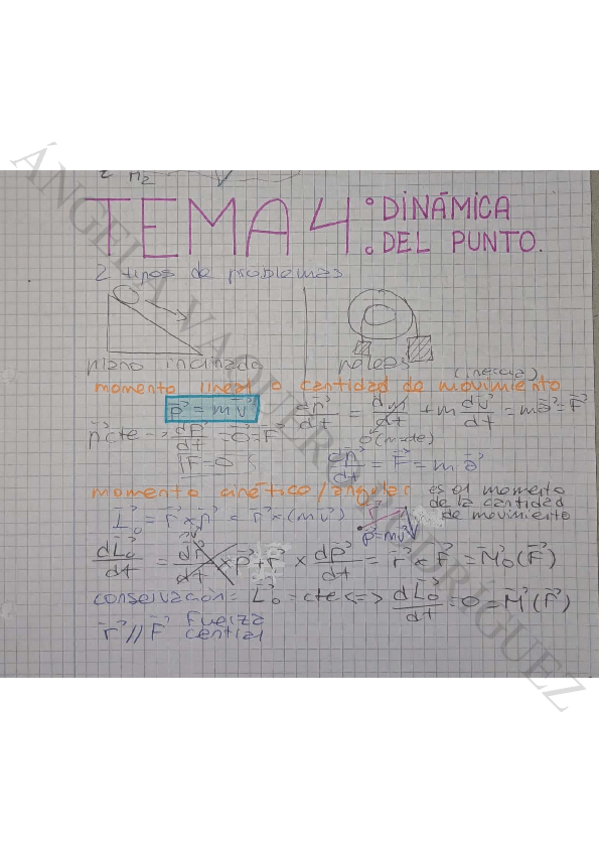 2 m₂
TEMA 4: DINÁMICA
DEL PUNTO.
2 tipos de problemas
plano inclinado
poleas
(inercia)
momento lineal o cantidad de movimiento
p⃗ = mv⃗
dp⃗/dt = dm/dt v⃗ + m dv⃗/dt = ma⃗ = F⃗
0 (m=cte)
p⃗ cte → dp⃗/dt = 0⃗ = F⃗
F⃗ = 0
dp⃗/dt = F⃗ = m a⃗
momento cinético/angular es el momento
de la cantidad
de movimiento
L⃗₀ = r⃗ × p⃗ = r⃗ × (mv⃗)
p⃗ = mv⃗
dL⃗₀/dt = dr⃗/dt × p⃗ + r⃗ × dp⃗/dt = r⃗ × F⃗ = M⃗₀(F⃗)
conservación = L⃗₀ = cte <=> dL⃗₀/dt = 0 = M⃗(F⃗)
r⃗ // F⃗ fuerza
central
ÁNGELA VAQUERO RODRÍGUEZ